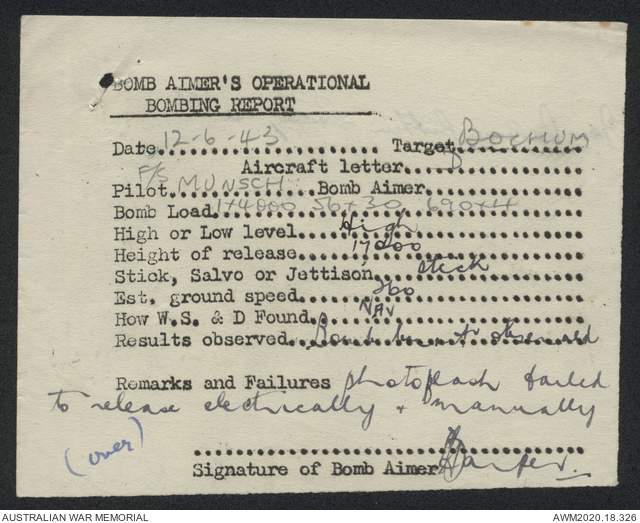 BOMB AIMER'S OPERATIONAL
BOMBING REPORT
Date 12-6-43 Target BOCHUM
Aircraft letter
Pilot F/S MUNSCH Bomb Aimer
Bomb Load 1x4000 56x30 690x4
High or Low level High
Height of release 17,000
Stick, Salvo or Jettison stick
Est. ground speed 260
How W.S. & D Found NAV
Results observed Bomb observed
Remarks and Failures photoflash failed
to release electrically & manually
(over)
Signature of Bomb Aimer Harper.
AUSTRALIAN WAR MEMORIAL AWM2020.18.326